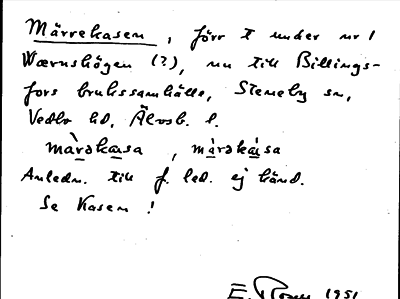 Märrekasen, förr t under nr 1
Wærnshögen (?), nu till Billings-
fors brukssamhälle, Steneby sn,
Vedbo hd, Älvsb. l.
màrəkasa, màrəkàsa
Anledn. till f. led. ej känd.
Se Kasen!
E. 1951